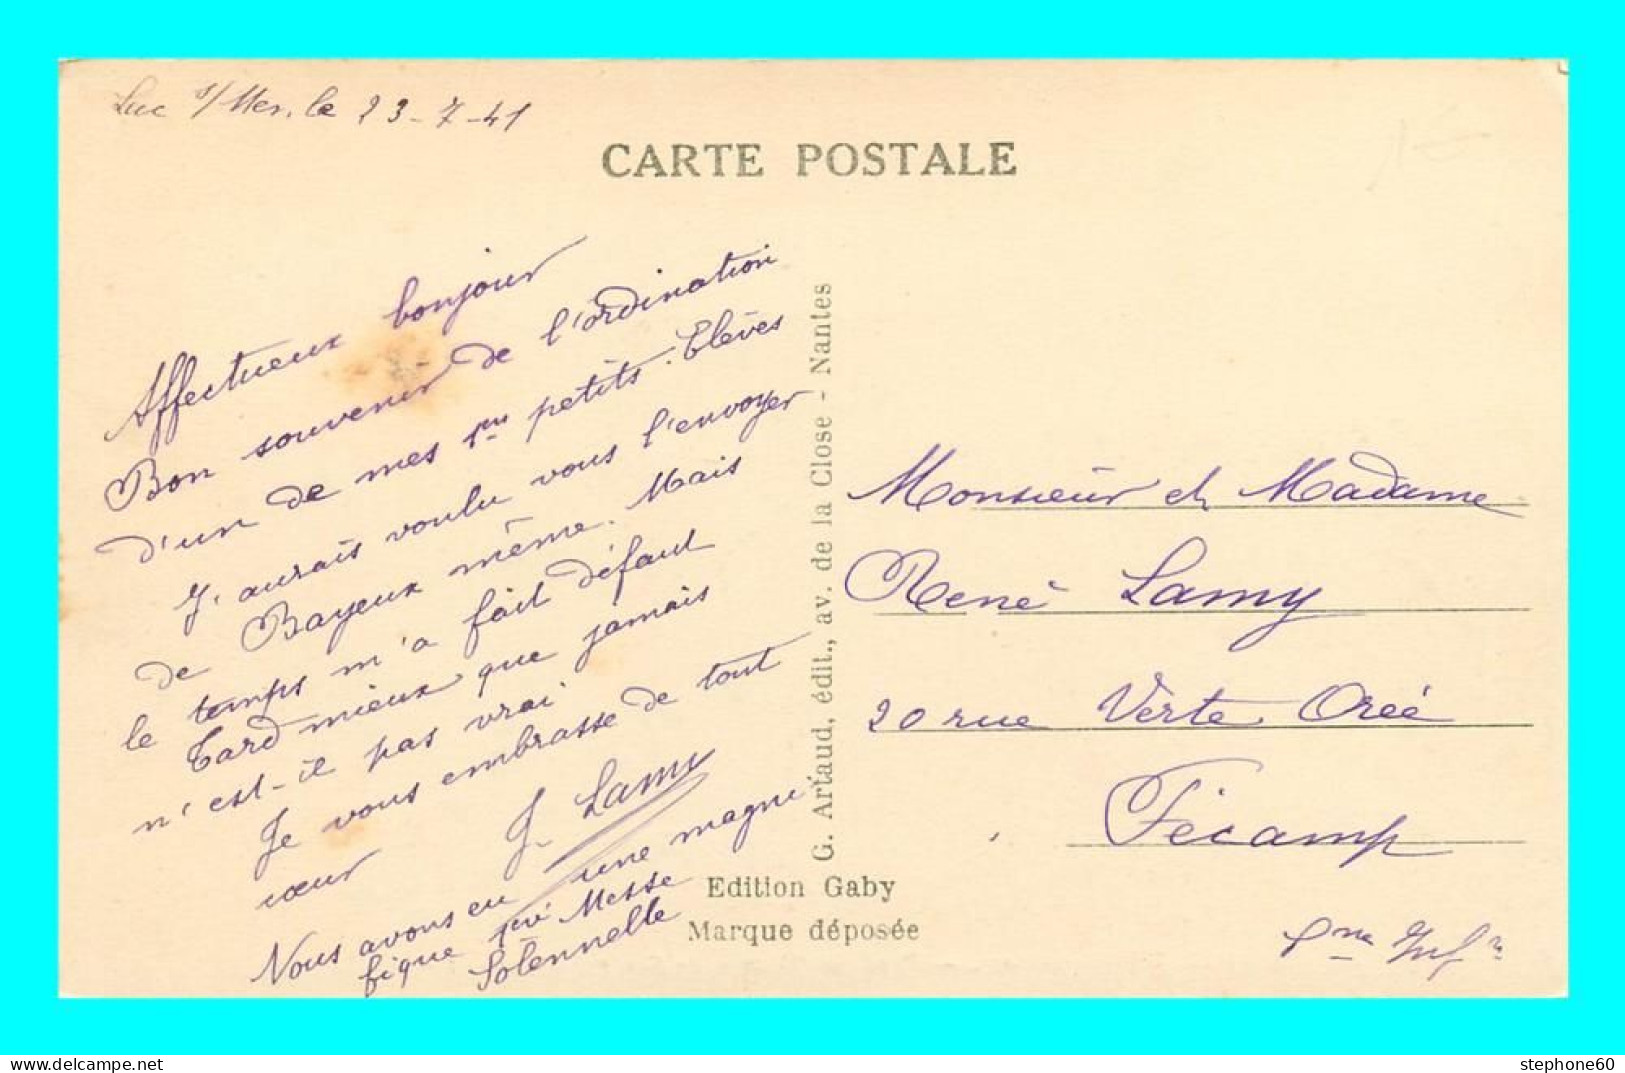 Luc s/Mer. le 23-7-41
CARTE POSTALE
Affectueux bonjour
Bon souvenir de l'ordination
d'un de mes 1ers petits. Elèves
J'aurais voulu vous l'envoyer
de Bayeux même. Mais
le temps m'a fait défaut
Tard mieux que jamais
n'est-il pas vrai
Je vous embrasse de tout
cœur J. Lamy
Nous avons eu une magni
fique 1ère Messe
Solennelle
G. Artaud, édit., av. de la Close - Nantes
Edition Gaby
Marque déposée
Monsieur et Madame
René Lamy
20 rue Verte Orée
Fécamp
Sne Infre
stephone60